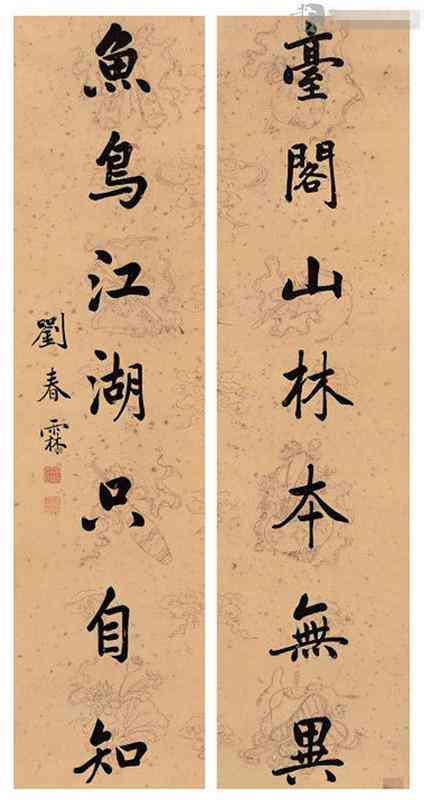 臺閣山林本無異
魚鳥江湖只自知
劉春霖